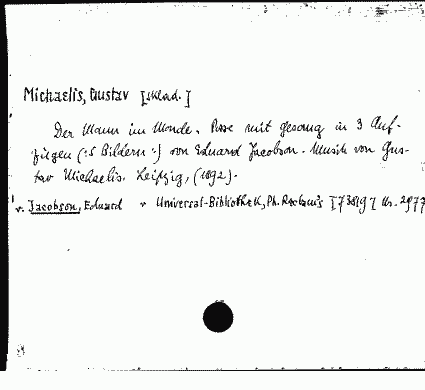 Michaelis, Gustav
Der Mann im Monde. Posse mit Gesang in 3 Auf-
zügen (:5 Bildern:) von Eduard Jacobson. Musik von Gus-
tav Michaelis. Leipzig, (1892).
v. Jacobson, Eduard v Universal-Bibliothek, Ph. Reclam's Nr. 2977